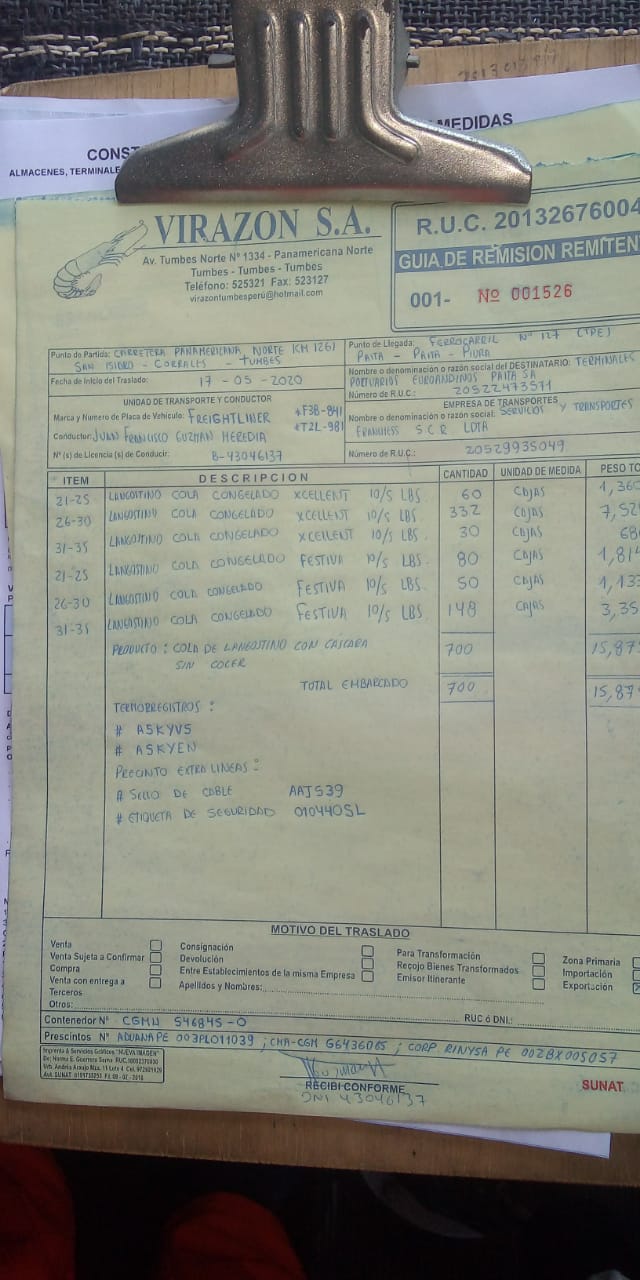 MEDIDAS
CONST
ALMACENES, TERMINALE
VIRAZON S.A.
Av. Tumbes Norte Nº 1334 - Panamericana Norte
Tumbes - Tumbes - Tumbes
Teléfono: 525321 Fax: 523127
virazontumbesperú@hotmail.com
R.U.C. 20132676004
GUIA DE REMISION REMITEN
001- Nº 001526
Punto de Partida: CARRETERA PANAMERICANA NORTE KM 1261
SAN ISIDRO - CORRALES - TUMBES
Fecha de Inicio del Traslado: 17 - 05 - 2020
Punto de Llegada: FERROCARRIL Nº 127 (TPE)
PAITA - PAITA - PIURA
Nombre o denominación o razón social del DESTINATARIO: TERMINALES
PORTUARIOS EUROANDINOS PAITA SA
Número de R.U.C.: 20522473571
UNIDAD DE TRANSPORTE Y CONDUCTOR
Marca y Numero de Placa de Vehículo: FREIGHTLINER *F3B-841
*T2L-981
Conductor: JUAN FRANCISCO GUZMAN HEREDIA
Nº (s) de Licencia (s) de Conducir: B-43046137
EMPRESA DE TRANSPORTES
Nombre o denominación o razón social: SERVICIOS Y TRANSPORTES
S C R LDTA
Número de R.U.C.: 20529935049
ITEM DESCRIPCION CANTIDAD UNIDAD DE MEDIDA PESO TO
21-25 LANGOSTINO COLA CONGELADO XCELLENT 10/5 LBS. 60 CAJAS 1,360
26-30 LANGOSTINO COLA CONGELADO XCELLENT 10/5 LBS 332 CAJAS 7,52
31-35 LANGOSTINO COLA CONGELADO XCELLENT 10/5 LBS 30 CAJAS 68
21-25 LANGOSTINO COLA CONGELADO FESTIVA 10/5 LBS. 80 CAJAS 1,814
26-30 LANGOSTINO COLA CONGELADO FESTIVA 10/5 LBS 50 CAJAS 1,133
31-35 LANGOSTINO COLA CONGELADO FESTIVA 10/5 LBS. 148 CAJAS 3,35
PRODUCTO : COLA DE LANGOSTINO CON CASCARA 700 15,87
SIN COCER
TOTAL EMBARCADO 700 15,87
TERMORREGISTROS :
# ASKYV5
# ASKYEN
PRECINTO EXTRA LINEAS :
# SELLO DE CABLE AAJ539
# ETIQUETA DE SEGURIDAD 010440SL
MOTIVO DEL TRASLADO
Venta
Venta Sujeta a Confirmar
Compra
Venta con entrega a
Terceros
Otros:
Consignación
Devolución
Entre Establecimientos de la misma Empresa
Apellidos y Nombres:
Para Transformación
Recojo Bienes Transformados
Emisor Itinerante
Zona Primaria
Importación
Exportación
RUC ó DNI.:
Contenedor Nº CGMU 546845-0
Prescintos Nº ADUANA PE 003PL011039 ; CMA-CGM G6436065 ; CORP. RINYSA PE 002BX005057
Imprenta & Servicios Gráficos "NUEVA IMAGEN"
RECIBI CONFORME
DNI 43046137
SUNAT